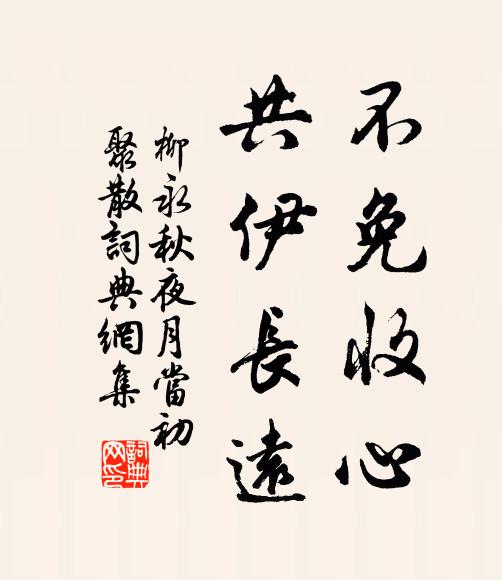 不免收心
共伊長遠
柳永秋夜月當初
聚散詞典網集
詞典
网印